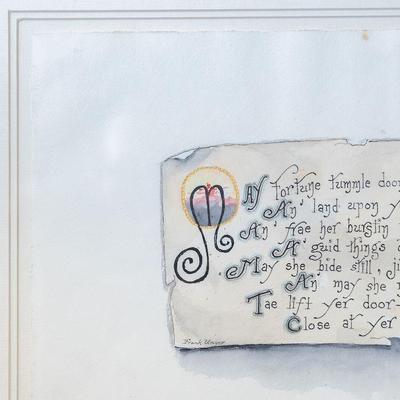 May fortune tummle doo
An' land upon y
An' frae her burstin
A' guid things
May she bide still, ji
An may she
Tae lift yer door-
Close at yer
Frank